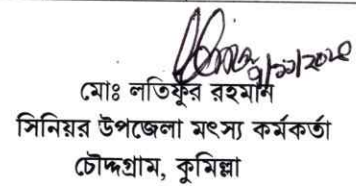 মোঃ লতিফুর রহমান
সিনিয়র উপজেলা মৎস্য কর্মকর্তা
চৌদ্দগ্রাম, কুমিল্লা